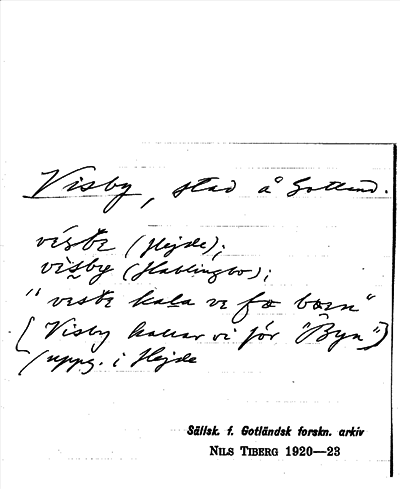 Visby, stad å Gotland.
viste (Hejde);
visby (Hablingbo);
"viste kala vi fœ bœrn"
[Visby kallar vi för "Byn"]
(uppg. i Hejde
Sällsk. f. Gotländsk forskn. arkiv
NILS TIBERG 1920—23